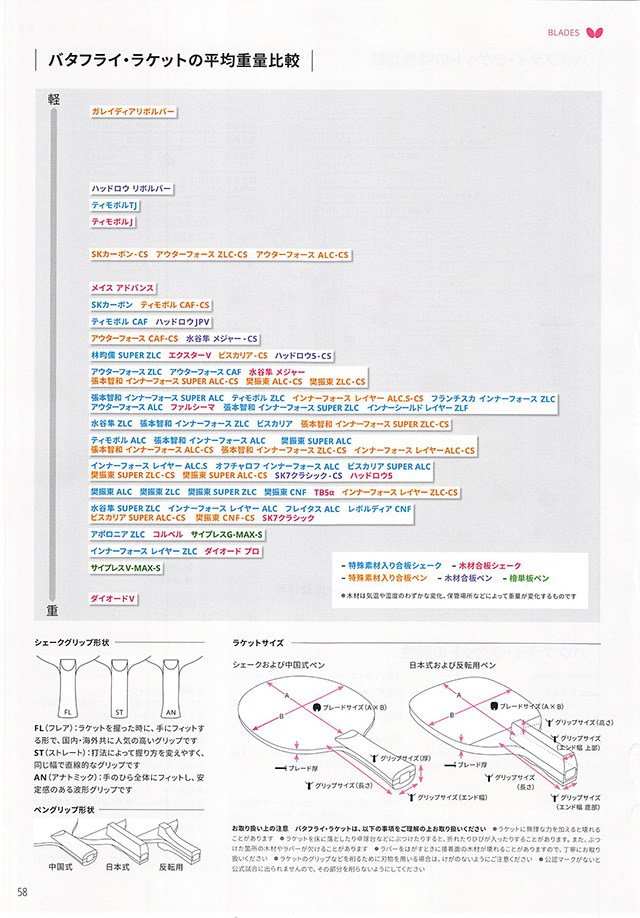 BLADES
バタフライ・ラケットの平均重量比較
軽
ガレイディアリボルバー
ハッドロウ リボルバー
ティモボルTJ
ティモボルJ
SKカーボン-CS アウターフォース ZLC-CS アウターフォース ALC-CS
メイス アドバンス
SKカーボン ティモボル CAF-CS
ティモボル CAF ハッドロウJPV
アウターフォース CAF-CS 水谷隼 メジャー-CS
林昀儒 SUPER ZLC エクスターV ビスカリア-CS ハッドロウS-CS
アウターフォース ZLC アウターフォース CAF 水谷隼 メジャー
張本智和 インナーフォース SUPER ALC-CS 樊振東 ALC-CS 樊振東 ZLC-CS
張本智和 インナーフォース SUPER ALC ティモボル ZLC インナーフォース レイヤー ALC.S-CS フランチスカ インナーフォース ZLC
アウターフォース ALC ファルシーマ 張本智和 インナーフォース SUPER ZLC インナーシールド レイヤー ZLF
水谷隼 ZLC 張本智和 インナーフォース ZLC ビスカリア 張本智和 インナーフォース SUPER ZLC-CS
ティモボル ALC 張本智和 インナーフォース ALC 樊振東 SUPER ALC
張本智和 インナーフォース ALC-CS 張本智和 インナーフォース ZLC-CS インナーフォース レイヤー ALC-CS
インナーフォース レイヤー ALC.S オフチャロフ インナーフォース ALC ビスカリア SUPER ALC
樊振東 SUPER ZLC-CS 樊振東 SUPER ALC-CS SK7クラシック-CS ハッドロウS
樊振東 ALC 樊振東 ZLC 樊振東 SUPER ZLC 樊振東 CNF TB5α インナーフォース レイヤー ZLC-CS
水谷隼 SUPER ZLC インナーフォース レイヤー ALC フレイタス ALC レボルディア CNF
ビスカリア SUPER ALC-CS 樊振東 CNF-CS SK7クラシック
アポロニア ZLC コルベル サイプレスG-MAX-S
インナーフォース レイヤー ZLC ダイオード プロ
サイプレスV-MAX-S
ダイオードV
重
– 特殊素材入り合板シェーク – 木材合板シェーク
– 特殊素材入り合板ペン – 木材合板ペン – 檜単板ペン
●木材は気温や湿度のわずかな変化、保管場所などによって重量が変化するものです
シェークグリップ形状
FL ST AN
FL(フレア):ラケットを握った時に、手にフィットす
る形で、国内・海外共に人気の高いグリップです
ST(ストレート):打法によって握り方を変えやすく、
同じ幅で直線的なグリップです
AN(アナトミック):手のひら全体にフィットし、安
定感のある波形グリップです
ペングリップ形状
中国式 日本式 反転用
ラケットサイズ
シェークおよび中国式ペン
A
B
ブレードサイズ(A×B)
ブレード厚
グリップサイズ(厚)
グリップサイズ(長さ)
グリップサイズ(エンド幅)
日本式および反転用ペン
A
B
ブレードサイズ(A×B)
グリップサイズ(高さ)
グリップサイズ
(エンド幅 上部)
ブレード厚
グリップサイズ
(長さ)
グリップサイズ
(エンド幅 底部)
お取り扱い上の注意 バタフライ・ラケットは、以下の事項をご理解の上お取り扱いください ●ラケットに無理な力を加えると壊れる
ことがあります ●ラケットを床に落としたり卓球台などにぶつけたりすると、折れたりひびが入ったりすることがあります。また、ぶつ
けた箇所の木材やラバーが欠けることがあります ●ラバーをはがすときに接着面の木材が壊れることがありますので、丁寧にお取り
扱いください ●ラケットのグリップなどを削るために刃物を用いる場合は、けがのないようにご注意ください ●公認マークがないと
公式試合に出られませんので、その部分を削らないようにしてください
58